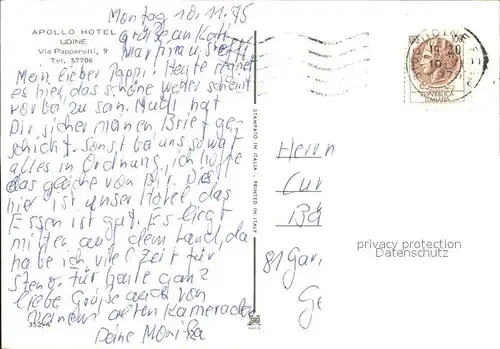 Montag 10.11.75
APOLLO HOTEL
UDINE
Via Papparotti, 9
Tel. 57706
Grüße an Kati
Martina u. Steffi
Mein lieber Pappi! Heute regnet
es hier, das schöne Wetter scheint
vorbei zu sein. Mutti hat
Dir sicher meinen Brief ge-
schickt. Sonst bei uns soweit
alles in Ordnung, ich hoffe
das gleiche von Dir. Dies
hier ist unser Hotel, das
Essen ist gut. Es liegt
mitten auf dem Land, da
habe ich viel Zeit für
Steno. Für heute ganz
liebe Grüße auch von
meinem alten Kameraden
Deine Monika
35244
STAMPATO IN ITALIA - PRINTED IN ITALY
UDINE
19-20
REPVBBLICA
ITALIANA
Herrn
Cur
Bä
81 Gar
Ge
privacy protection
DenBenutzer